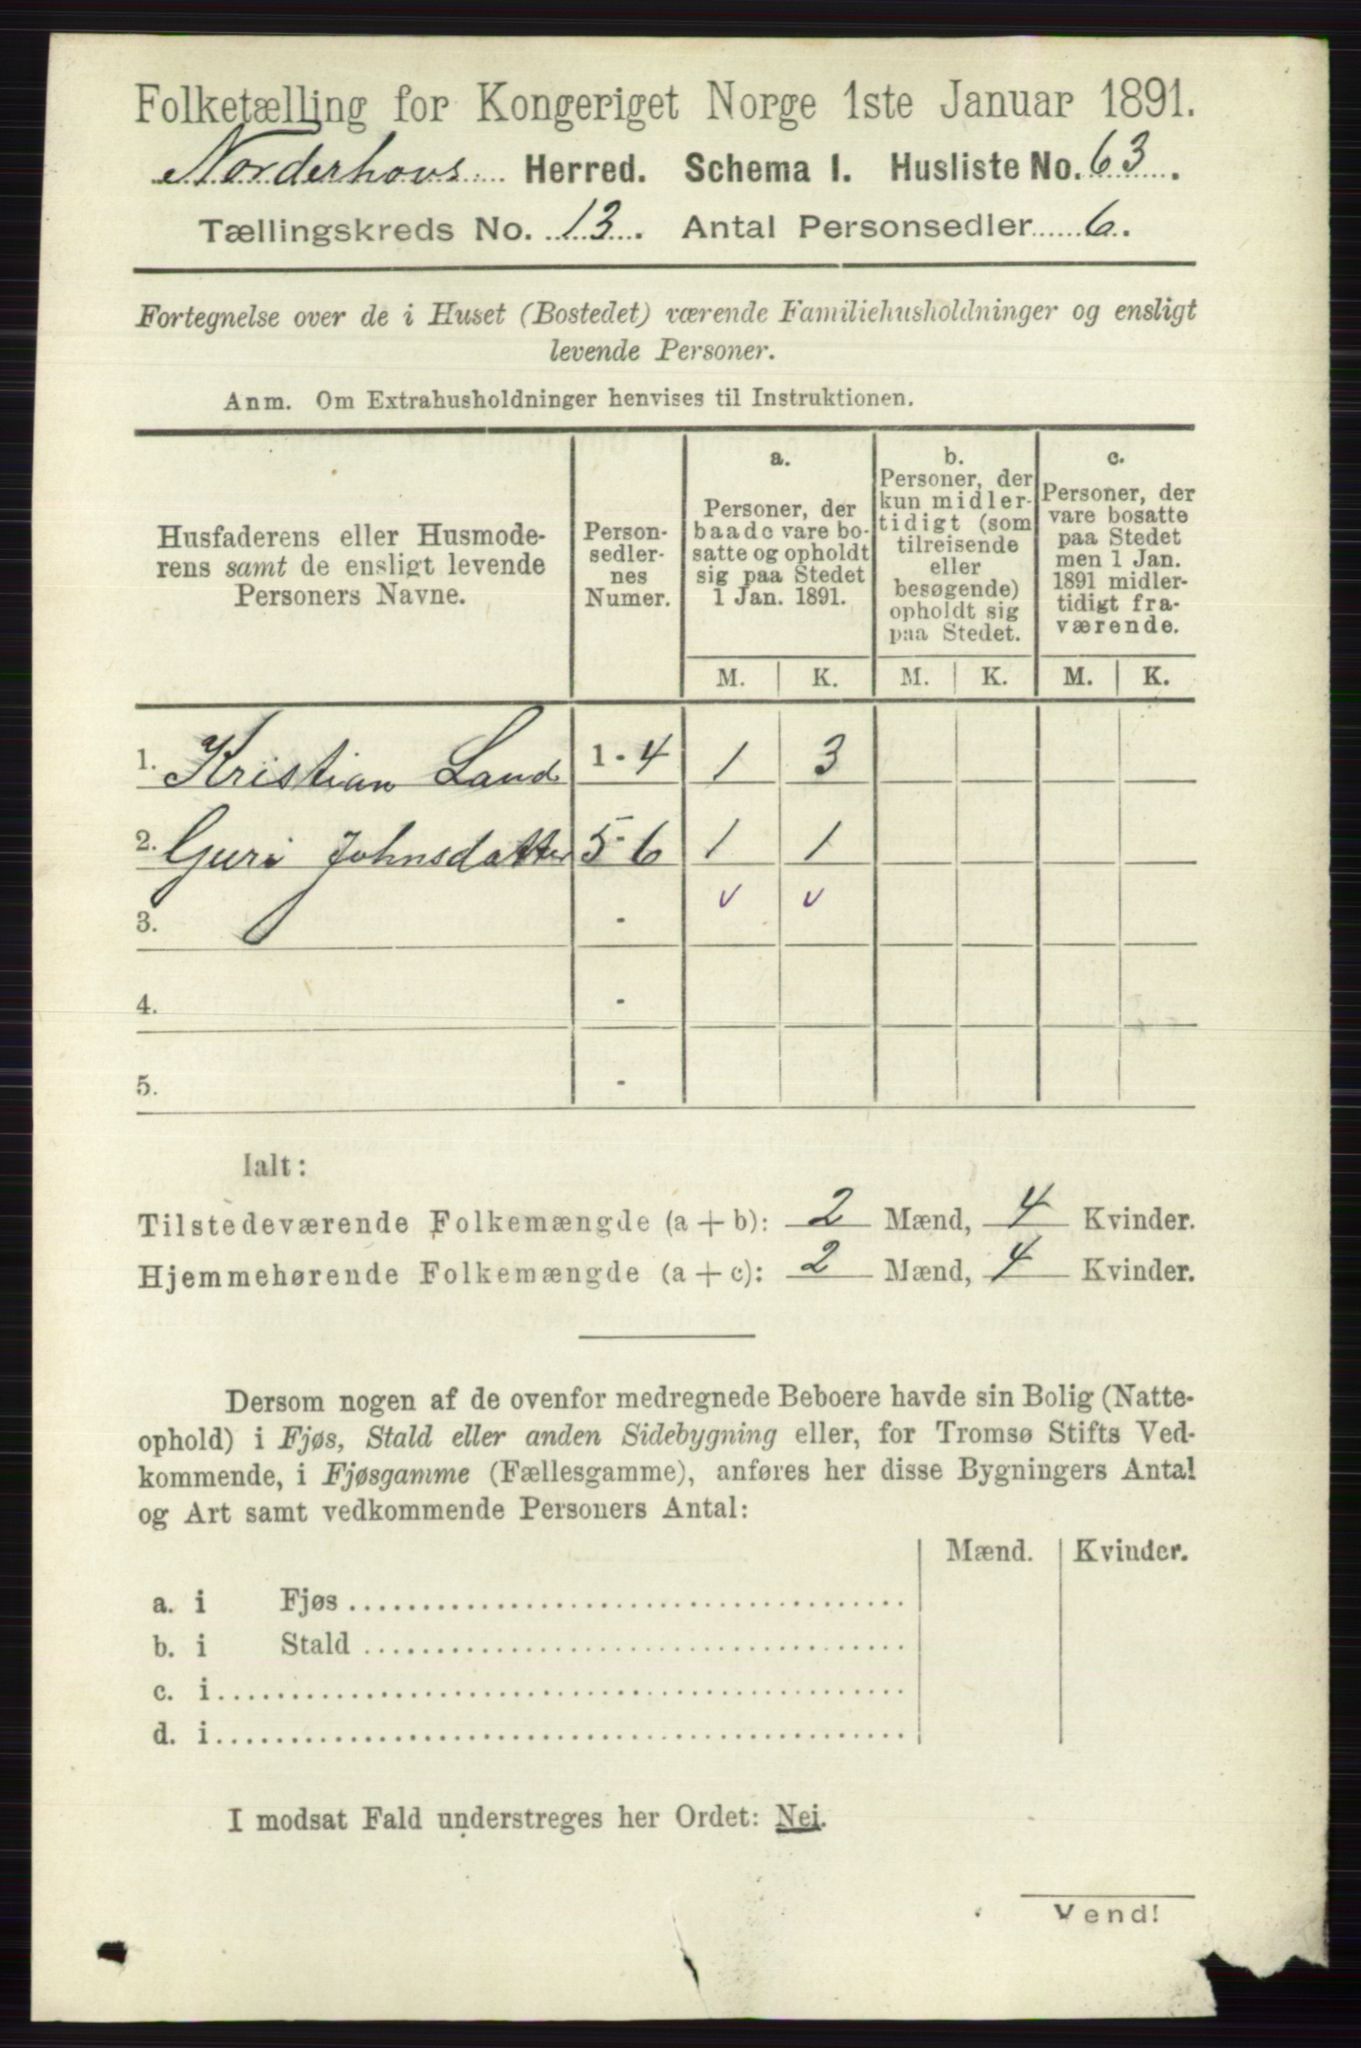 Folketælling for Kongeriget Norge 1ste Januar 1891.
Norderhovs Herred. Schema I. Husliste No. 63.
Tællingskreds No. 13. Antal Personsedler 6.
Fortegnelse over de i Huset (Bostedet) værende Familiehusholdninger og ensligt
levende Personer.
Anm. Om Extrahusholdninger henvises til Instruktionen.
Husfaderens eller Husmode-
rens samt de ensligt levende
Personers Navne.
Person-
sedler-
nes
Numer.
a.
Personer, der
baade vare bo-
satte og opholdt
sig paa Stedet
1 Jan. 1891.
b.
Personer, der
kun midler-
tidigt (som
tilreisende
eller
besøgende)
opholdt sig
paa Stedet.
c.
Personer, der
vare bosatte
paa Stedet
men 1 Jan.
1891 midler-
tidigt fra-
værende.
M. K. M. K. M. K.
1. Kristian Land 1-4 1 3
2. Guri Johnsdatter 5-6 1 1
3. - v v
4. -
5. -
Ialt:
Tilstedeværende Folkemængde (a + b): 2 Mænd, 4 Kvinder.
Hjemmehørende Folkemængde (a + c): 2 Mænd, 4 Kvinder.
Dersom nogen af de ovenfor medregnede Beboere havde sin Bolig (Natte-
ophold) i Fjøs, Stald eller anden Sidebygning eller, for Tromsø Stifts Ved-
kommende, i Fjøsgamme (Fællesgamme), anføres her disse Bygningers Antal
og Art samt vedkommende Personers Antal:
Mænd. Kvinder.
a. i Fjøs
b. i Stald
c. i
d. i
I modsat Fald understreges her Ordet: Nei.
Vend!